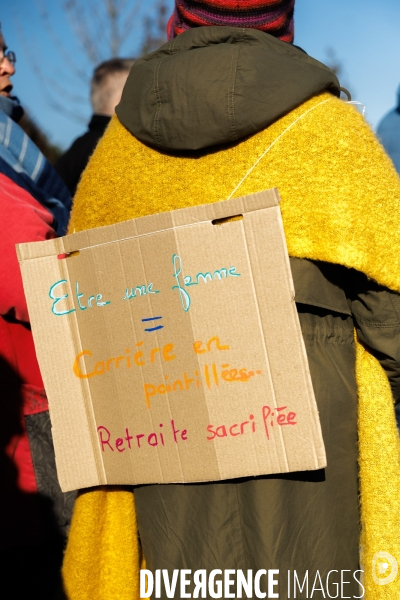 Etre une femme
=
Carrière en
pointillées...
Retraite sacrifiée
DIVERGENCE IMAGES